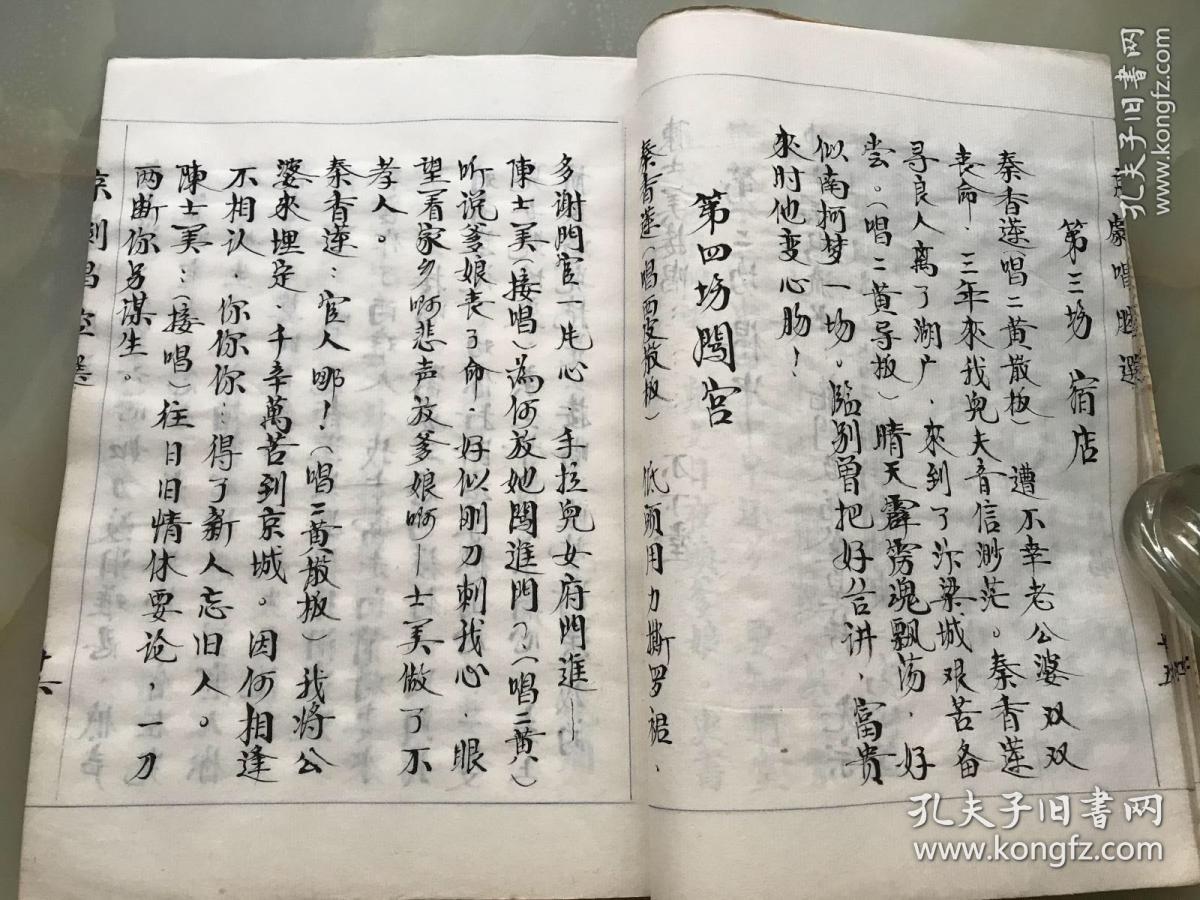 劇唱腔選
第三場 宿店
秦香莲(唱二黄散板) 遭不幸老公婆双双
丧命．三年來我兒夫音信渺茫。秦香莲
寻良人离了湖广．來到了汴梁城艰苦备
尝。(唱二黄导板)晴天霹雳魂飘荡．好
似南柯梦一场。临别曾把好言讲．富贵
來时他变心肠！
第四场闖宫
秦香莲(唱西皮散板) 低頭用力撕罗裙．
多谢門官一片心．手拉兒女府門進——
陳士美(接唱)為何放她闖進門？(唱二黄)
听说爹娘丧了命．好似刚刀刺我心．眼
望着家乡啊悲声放爹娘啊——士美做了不
孝人。
秦香莲：官人哪！(唱二黄散板)我将公
婆來埋定．千辛萬苦到京城。因何相逢
不相认．你你你：得了新人忘旧人。
陳士美：(接唱)往日旧情休要论，一刀
两断你另谋生。
十六
孔夫子旧书网
www.kongfz.com
孔夫子旧书网
www.kongfz.com